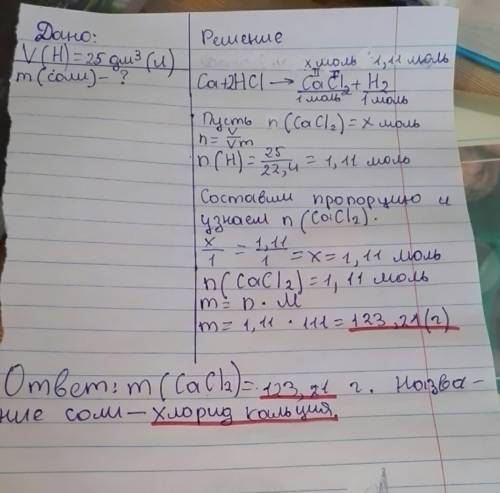 Дано:
V(H)=25 дм³(л)
m(соли)-?
Решение
x моль 1,11 моль
Ca+2HCl → CaCl₂ + H₂
1 моль 1 моль
Пусть n(CaCl₂)=x моль
n=V/Vm
n(H)=25/22,4=1,11 моль
Составим пропорцию и
узнаем n(CaCl₂).
x/1=1,11/1=x=1,11 моль
n(CaCl₂)=1,11 моль
m=n·M
m=1,11·111=123,21(г)
Ответ: m(CaCl₂)=123,21 г. Назва-
ние соли—хлорид кальция.